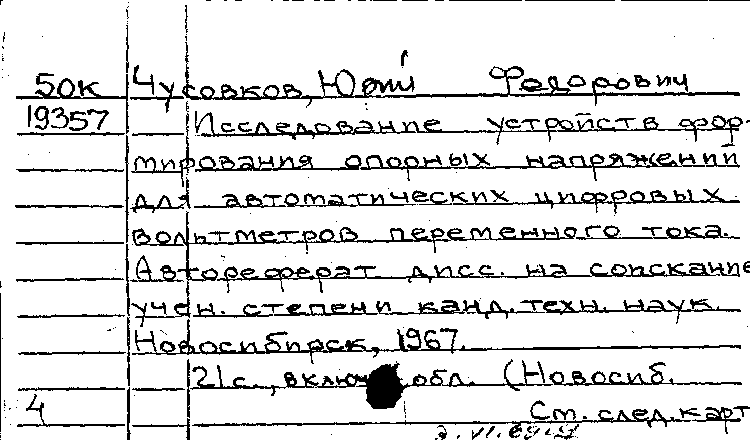 50к Чусовков, Юрий Федорович
19357 Исследование устройств фор-
мирования опорных напряжений
для автоматических цифровых
вольтметров переменного тока.
Автореферат дисс. на соискание
учен. степени канд. техн. наук.
Новосибирск, 1967.
21с., включ. обл. (Новосиб.
4 См. след. карт